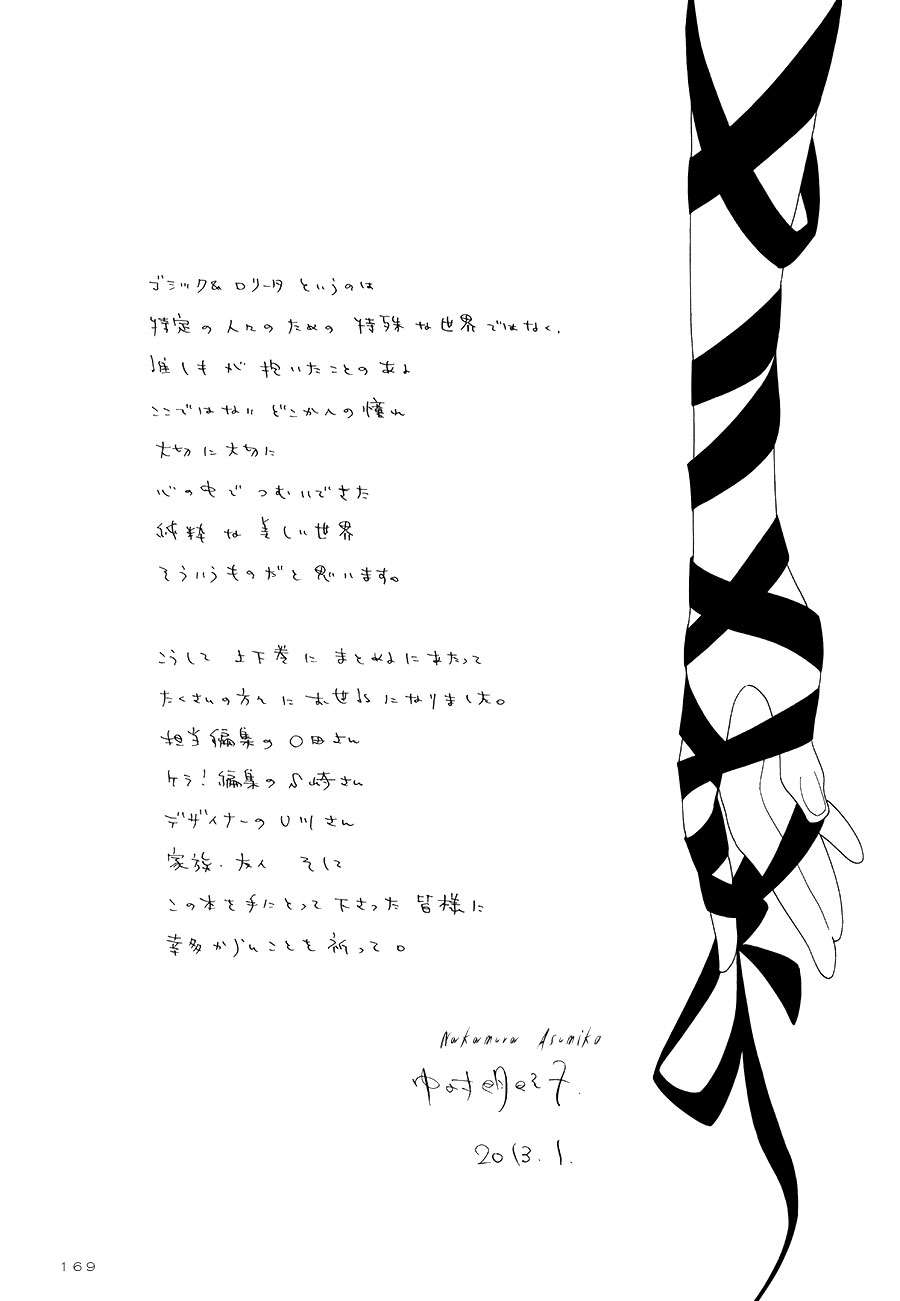 ゴシック&ロリータというのは
特定の人々のための特殊な世界ではなく、
誰しもが抱いたことのある
ここではないどこかへの憧れ
大切に大切に
心の中でつむいできた
純粋な美しい世界
そういうものだと思います。
こうして上下巻にまとめるにあたって
たくさんの方々にお世話になりました。
担当編集の〇田さん
ケラ!編集の崎さん
デザイナーのU川さん
家族・友人 そして
この本を手にとって下さった皆様に
幸多からんことを祈って。
Nakamura Asumiko
中村明日美子.
2013.1.
169